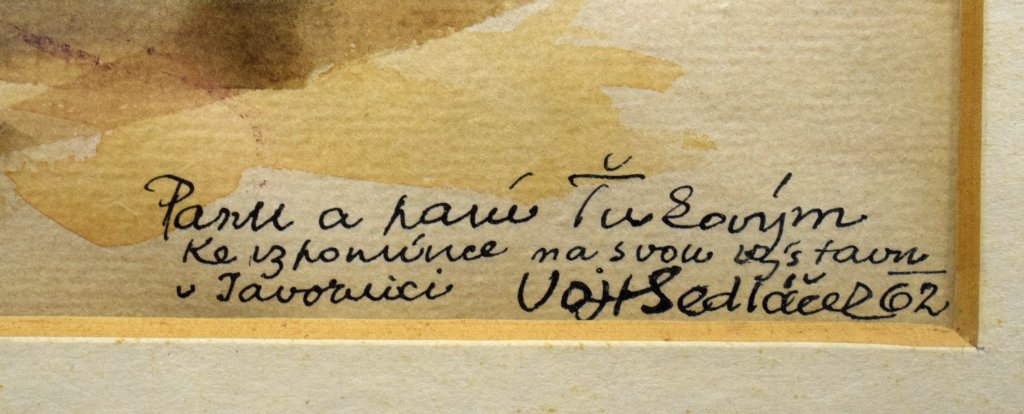 Panu a paní Ťukovým
ke vzpomínce na svou výstavu
v Javornici Vojt Sedláček 62